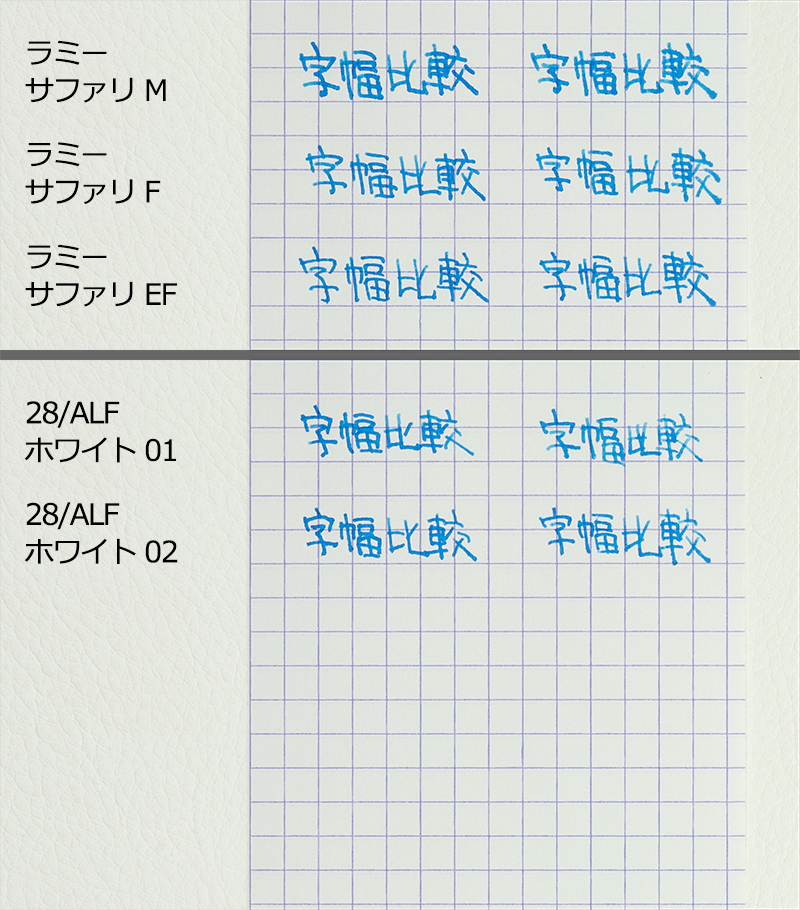 ラミー
サファリ M
字幅比較 字幅比較
ラミー
サファリ F
字幅比較 字幅比較
ラミー
サファリ EF
字幅比較 字幅比較
28/ALF
ホワイト 01
字幅比較 字幅比較
28/ALF
ホワイト 02
字幅比較 字幅比較